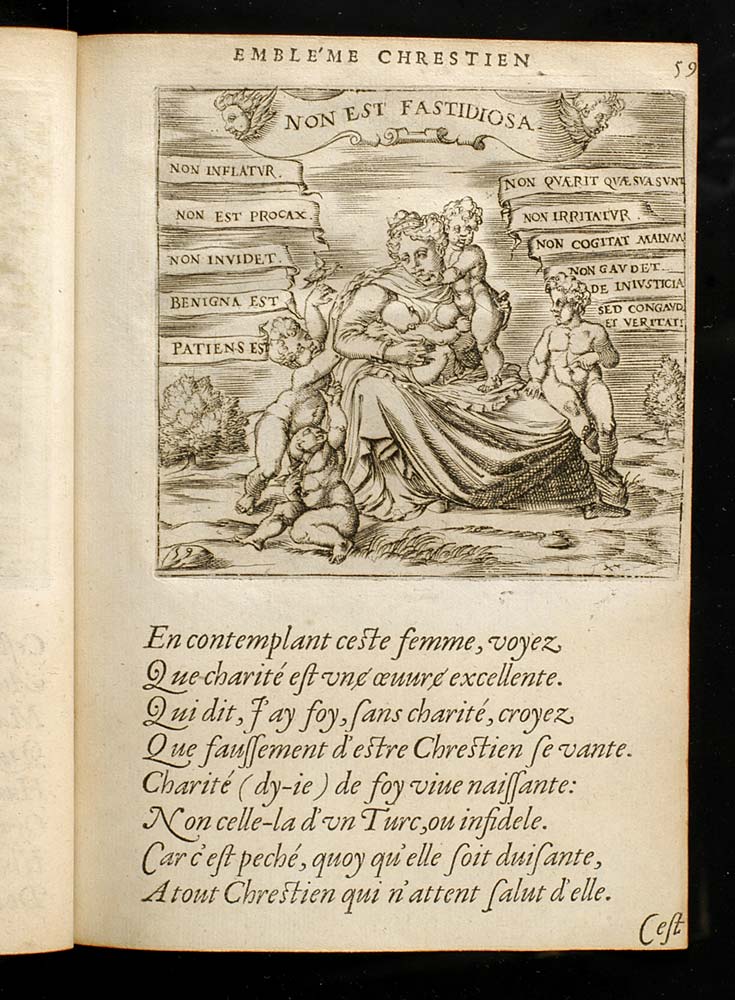 EMBLE'ME CHRESTIEN
59
NON EST FASTIDIOSA.
NON INFLATVR.
NON EST PROCAX.
NON INVIDET.
BENIGNA EST
PATIENS ES
NON QVÆRIT QVÆ SVA SVNT
NON IRRITATVR.
NON COGITAT MALVM
NON GAVDET.
DE INIVSTICIA
SED CONGAVD
ET VERITATI
59
En contemplant ceste femme, voyez
Que charité est vnɇ œuurɇ excellente.
Qui dit, J'ay foy, sans charité, croyez
Que faussement d'estre Chrestien se vante.
Charité (dy-ie) de foy viue naissante:
Non celle-la d'vn Turc, ou infidele.
Car c'est peché, quoy qu'elle soit duisante,
A tout Chrestien qui n'attent salut d'elle.
C'est